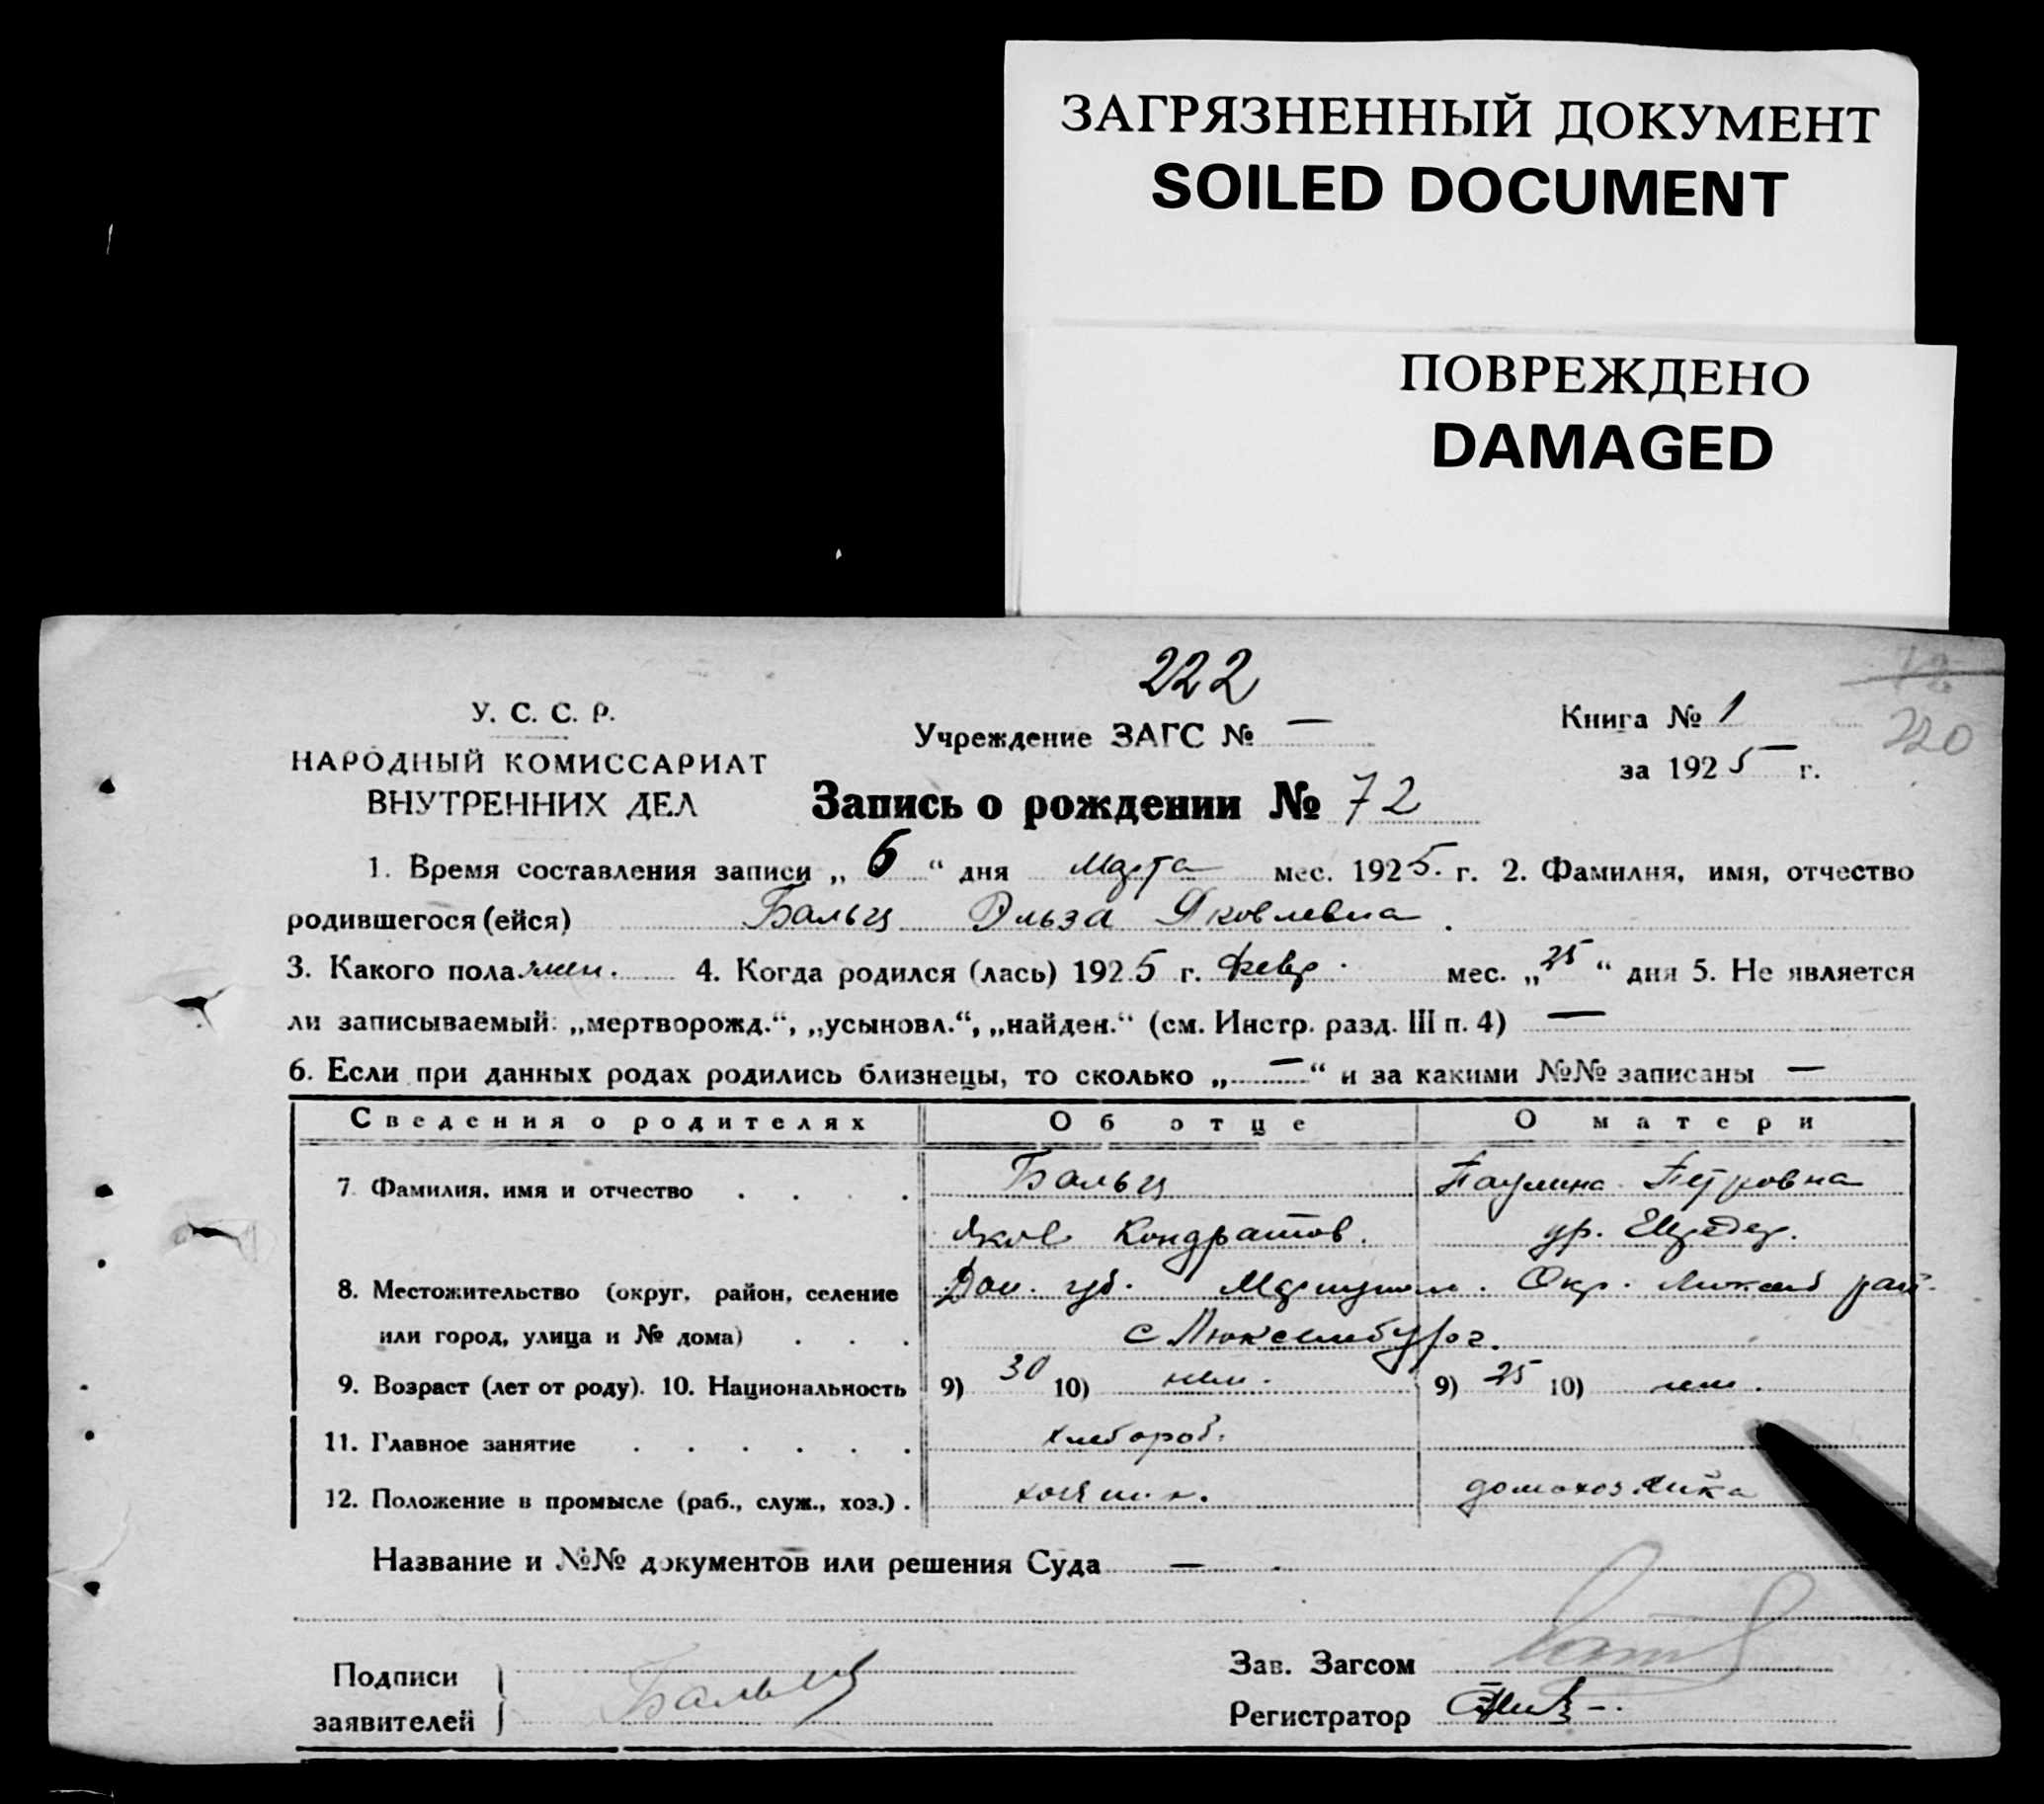 ЗАГРЯЗНЕННЫЙ ДОКУМЕНТ
SOILED DOCUMENT
ПОВРЕЖДЕНО
DAMAGED
222
72
220
У. С. С. Р.
НАРОДНЫЙ КОМИССАРИАТ
ВНУТРЕННИХ ДЕЛ
Учреждение ЗАГС № —
Книга № 1
за 1925 г.
Запись о рождении № 72
1. Время составления записи „ 6 “ дня Марта мес. 1925. г. 2. Фамилия, имя, отчество
родившегося (ейся) Бальц Эльза Яковлевна
3. Какого пола жен. 4. Когда родился (лась) 1925 г. февр. мес. „25“ дня 5. Не является
ли записываемый: „мертворожд.“, „усыновл.“, „найден.“ (см. Инстр. разд. III п. 4) —
6. Если при данных родах родились близнецы, то сколько „—“ и за какими №№ записаны —
Сведения о родителях Об отце О матери
7. Фамилия, имя и отчество . . . . Бальц Паулина Петровна
Яков Кондратов. ур.
8. Местожительство (округ, район, селение Дон. губ. Мариупол. Окр. Люксемб рай.
или город, улица и № дома) . . . с Люксембург.
9. Возраст (лет от роду). 10. Национальность 9) 30 10) нем. 9) 25 10) нем.
11. Главное занятие . . . . . . хлебороб.
12. Положение в промысле (раб., служ., хоз.) . хозяин. домохозяйка
Название и №№ документов или решения Суда —
Подписи
заявителей
Бальц
Зав. Загсом
Регистратор